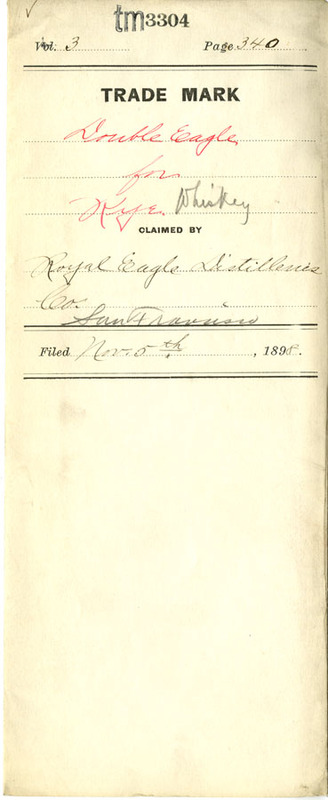 tm3304
Vol. 3 Page 340
TRADE MARK
Double Eagle
for
Rye Whiskey
CLAIMED BY
Royal Eagle Distilleries
Co.
San Francisco
Filed Nov. 5th, 1898.